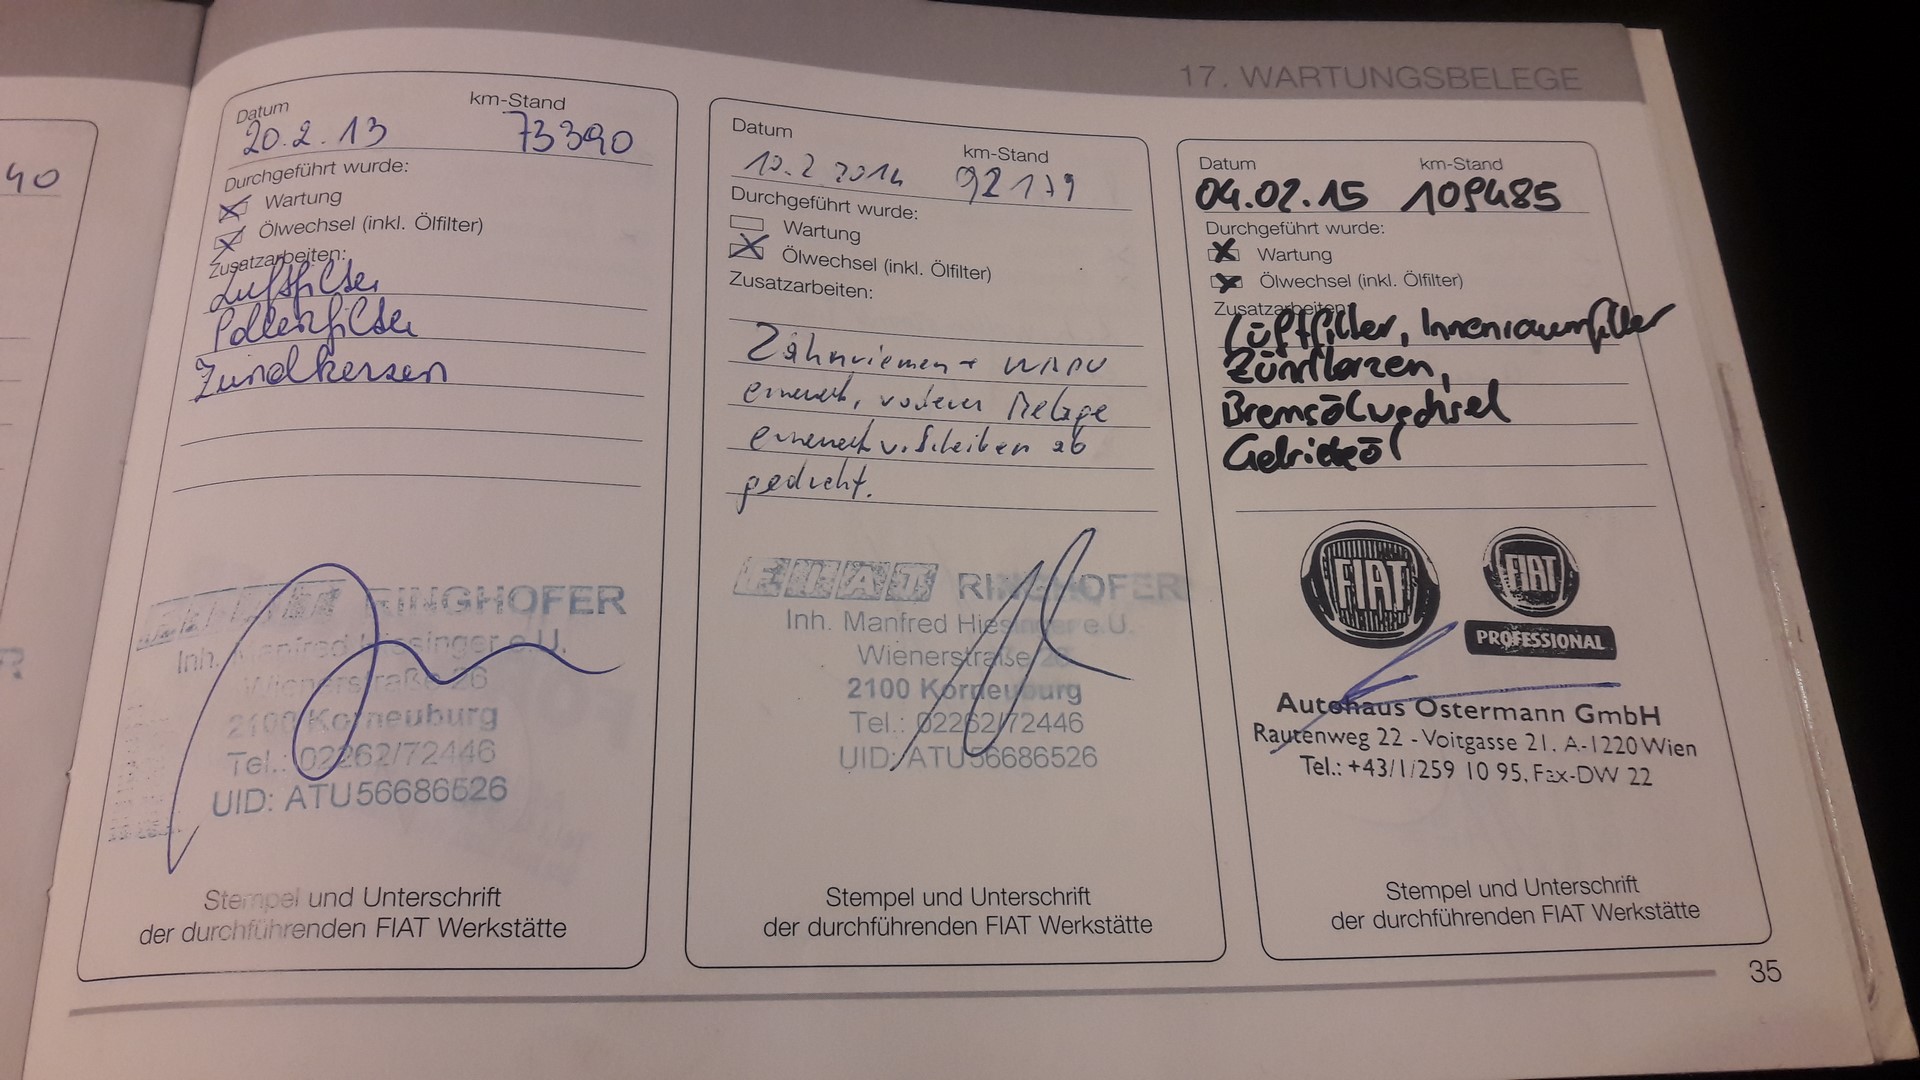 17. WARTUNGSBELEGE
40
Datum km-Stand
20.2.13 73390
Durchgeführt wurde:
Wartung
Ölwechsel (inkl. Ölfilter)
Zusatzarbeiten:
Luftfilter
Pollenfilter
Zündkerzen
RINGHOFER
Inh. Manfred Hiesinger e.U.
Wienerstraße 26
2100 Korneuburg
Tel.: 02262/72446
UID: ATU56686526
Stempel und Unterschrift
der durchführenden FIAT Werkstätte
Datum km-Stand
2014 92179
Durchgeführt wurde:
Wartung
Ölwechsel (inkl. Ölfilter)
Zusatzarbeiten:
Zahnriemen + WAPU
erneuert, vordere Beläge
erneuert v. Scheiben ab
gedreht.
FIAT RINGHOFER
Inh. Manfred Hiesinger e.U.
Wienerstraße 26
2100 Korneuburg
Tel.: 02262/72446
UID: ATU56686526
Stempel und Unterschrift
der durchführenden FIAT Werkstätte
Datum km-Stand
04.02.15 109485
Durchgeführt wurde:
Wartung
Ölwechsel (inkl. Ölfilter)
Zusatzarbeiten:
Luftfilter, Innenraumfilter
Zündkerzen,
Bremsölwechsel
Getriebeöl
FIAT FIAT
PROFESSIONAL
Autohaus Ostermann GmbH
Rautenweg 22 - Voitgasse 21, A-1220 Wien
Tel.: +43/1/259 10 95, Fax-DW 22
Stempel und Unterschrift
der durchführenden FIAT Werkstätte
35